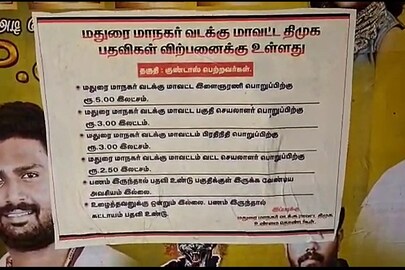 மதுரை மாநகர் வடக்கு மாவட்ட திமுக
பதவிகள் விற்பனைக்கு உள்ளது
தகுதி : குண்டாஸ் பெற்றவர்கள்.
* மதுரை மாநகர் வடக்கு மாவட்ட இளைஞரணி பொறுப்பிற்கு
ரூ.5.00 இலட்சம்.
* மதுரை மாநகர் வடக்கு மாவட்ட பகுதி செயலாளர் பொறுப்பிற்கு
ரூ.3.00 இலட்டம்.
* மதுரை மாநகர் வடக்கு மாவட்டம் பிரதிநிதி பொறுப்பிற்கு
ரூ.3.00 இலட்சம்.
* மதுரை மாநகர் வடக்கு மாவட்ட வட்ட செயலாளர் பொறுப்பிற்கு
ரூ.2.50 இலட்சம்.
* பணம் இருந்தால் பதவி உண்டு பகுதிக்குள் இருக்க வேண்டிய
அவசியம் இல்லை.
* உழைத்தவனுக்கு ஒன்றும் இல்லை. பணம் இருந்தால்
கட்டாயம் பதவி உண்டு.
இப்படிக்கு
மதுரை மாநகர் வடக்கு மாவட்ட திமுக
உண்மை தொண்டர்கள்.